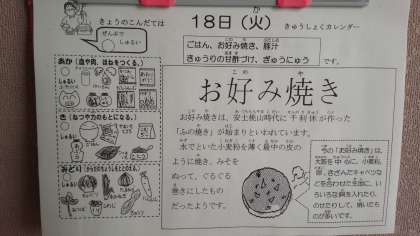 きょうのこんだては
ぜんぶで
しゅるい
18日(火)
きゅうしょくカレンダー
ごはん、お好み焼き、豚汁
きゅうりの甘酢づけ、ぎゅうにゅう
です。
あか(血や肉、ほねをつくる。)
しゅるい
き(ねつや力のもとになる。)
しゅるい
みどり(からだのちょうしをととのえる。)
しゅるい
お好み焼き
お好み焼きは、安土桃山時代に千利休が作った
「ふの焼き」が始まりといわれています。
水でといた小麦粉を薄く最中の皮の
ように焼き、みそを
ぬって、ぐるぐる
巻きにしたもの
だったようです。
今の「お好み焼き」は、
大阪を中心に、小麦粉、
卵、きざんだキャベツな
どを合わせた生地に、い
ろいろな具を入れたり、
のせたりして、焼いたも
のが多いです。